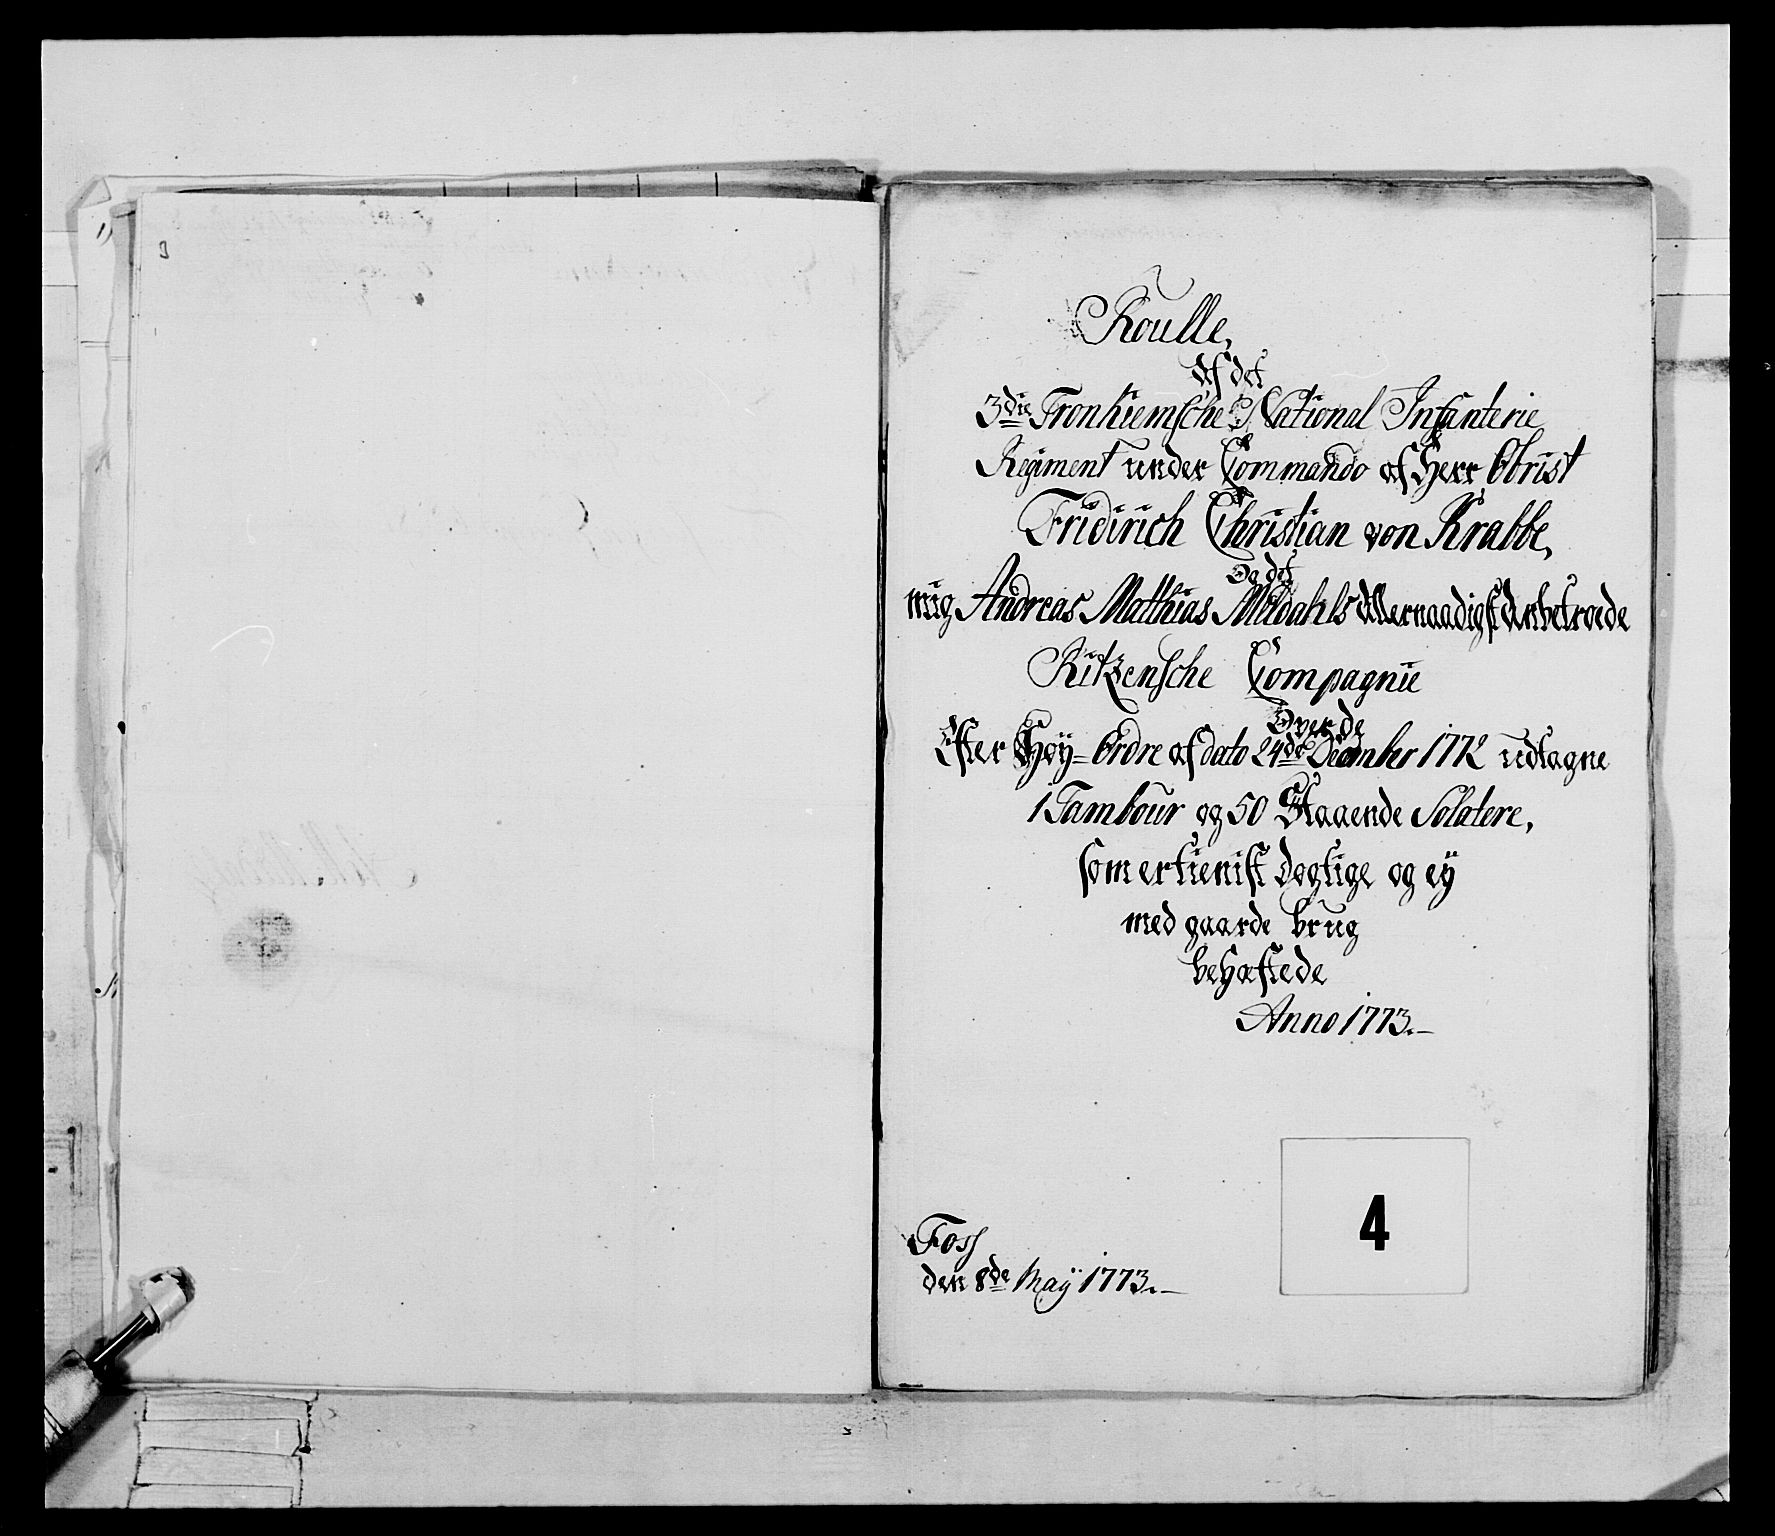 Roulle,
af det
3die Tronhiemsche National Infanterie
Regiment under Commando af Herr Obrist
Fridirich Christian von Krabbe,
Og det
mig Andreas Matthias Meldahls Allernaadigst Anbetroede
Ritzensche Compagnie
Over de
Efter Høy-Ordre af dato 24de December 1772 udtagne
1 Tambour og 50 Staaende Solatere,
som er tienist dogtige og ey
med gaarde brug
behæftede
Anno 1773.
4
Foss
den 8de May 1773.